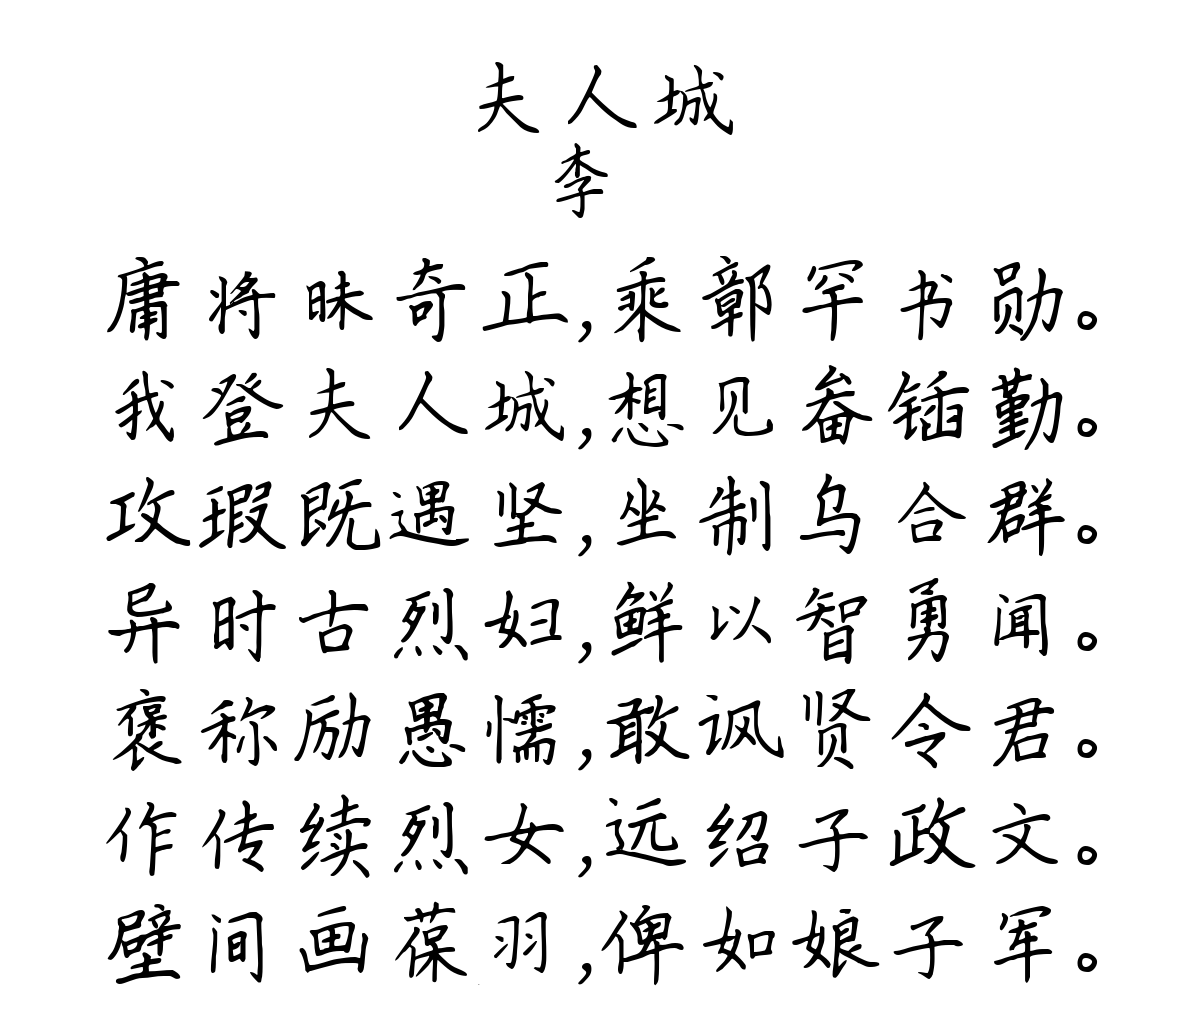 夫人城
李
庸将昧奇正,乘鄣罕书勋。
我登夫人城,想见畚锸勤。
攻瑕既遇坚,坐制乌合群。
异时古烈妇,鲜以智勇闻。
褒称励愚懦,敢讽贤令君。
作传续烈女,远绍子政文。
壁间画葆羽,俾如娘子军。